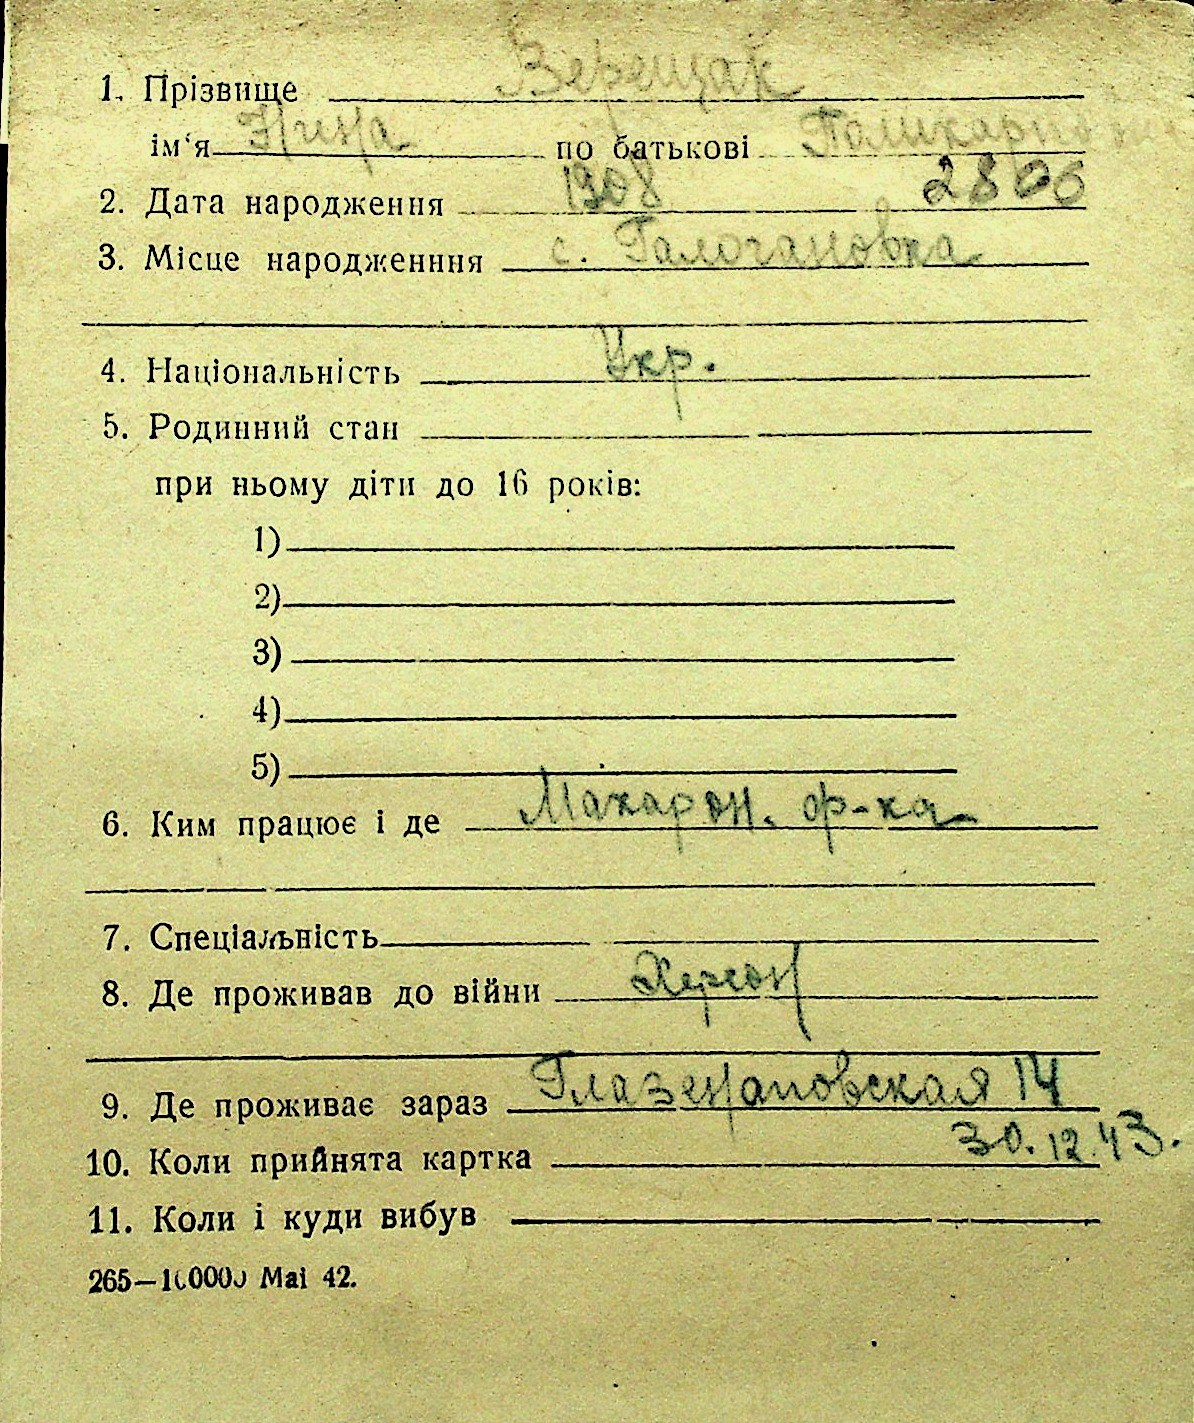 1. Прізвище Верещак
ім‘я Нина по батькові Поликарповна
2. Дата народження 1908 2806
3. Місце народженння с. Галогановка
4. Національність Укр.
5. Родинний стан
при ньому діти до 16 років:
1)
2)
3)
4)
5)
6. Ким працює і де Макарон. ф-ка
7. Спеціальність
8. Де проживав до війни Херсон
9. Де проживає зараз Глазенаповская 14
10. Коли прийнята картка 30.12.43.
11. Коли і куди вибув
265—10000 Mai 42.